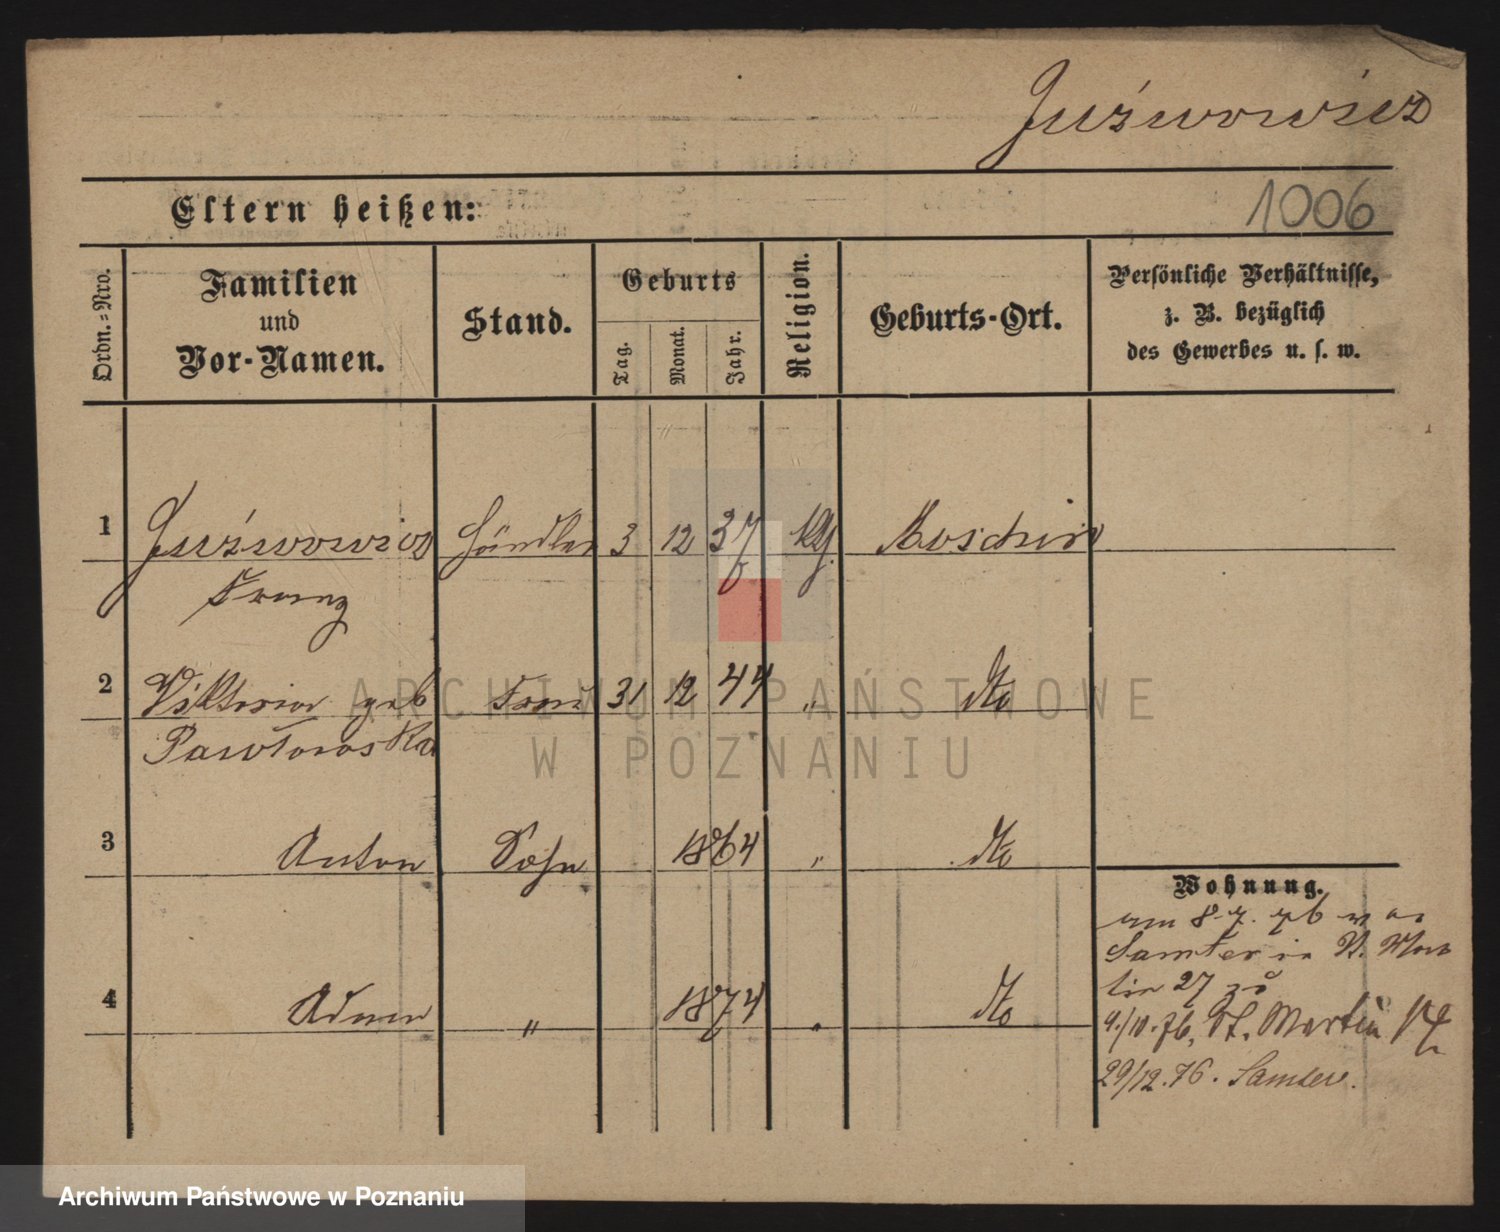 Juźwowicz
Eltern heißen:
1006
Ordn.-Nro.
Familien
und
Vor-Namen.
Stand.
Geburts
Tag.
Monat.
Jahr.
Religion.
Geburts-Ort.
Persönliche Verhältnisse,
z. B. bezüglich
des Gewerbes u. s. w.
1 Juźwowicz Händler 3 12 37 Moschin
Franz
2 Viktoria geb Frau 31 12 44 " dto
Pawłowska
3 Anton Sohn 1864 " dto
4 Adam " 1874 " dto
Wohnung.
am 8.7.76 v as
Samter in St. Mar
tin 27 zu
4./10.76, St. Martin
29/12.76. Samter.
ARCHIWUM PAŃSTWOWE
W POZNANIU
Archiwum Państwowe w Poznaniu